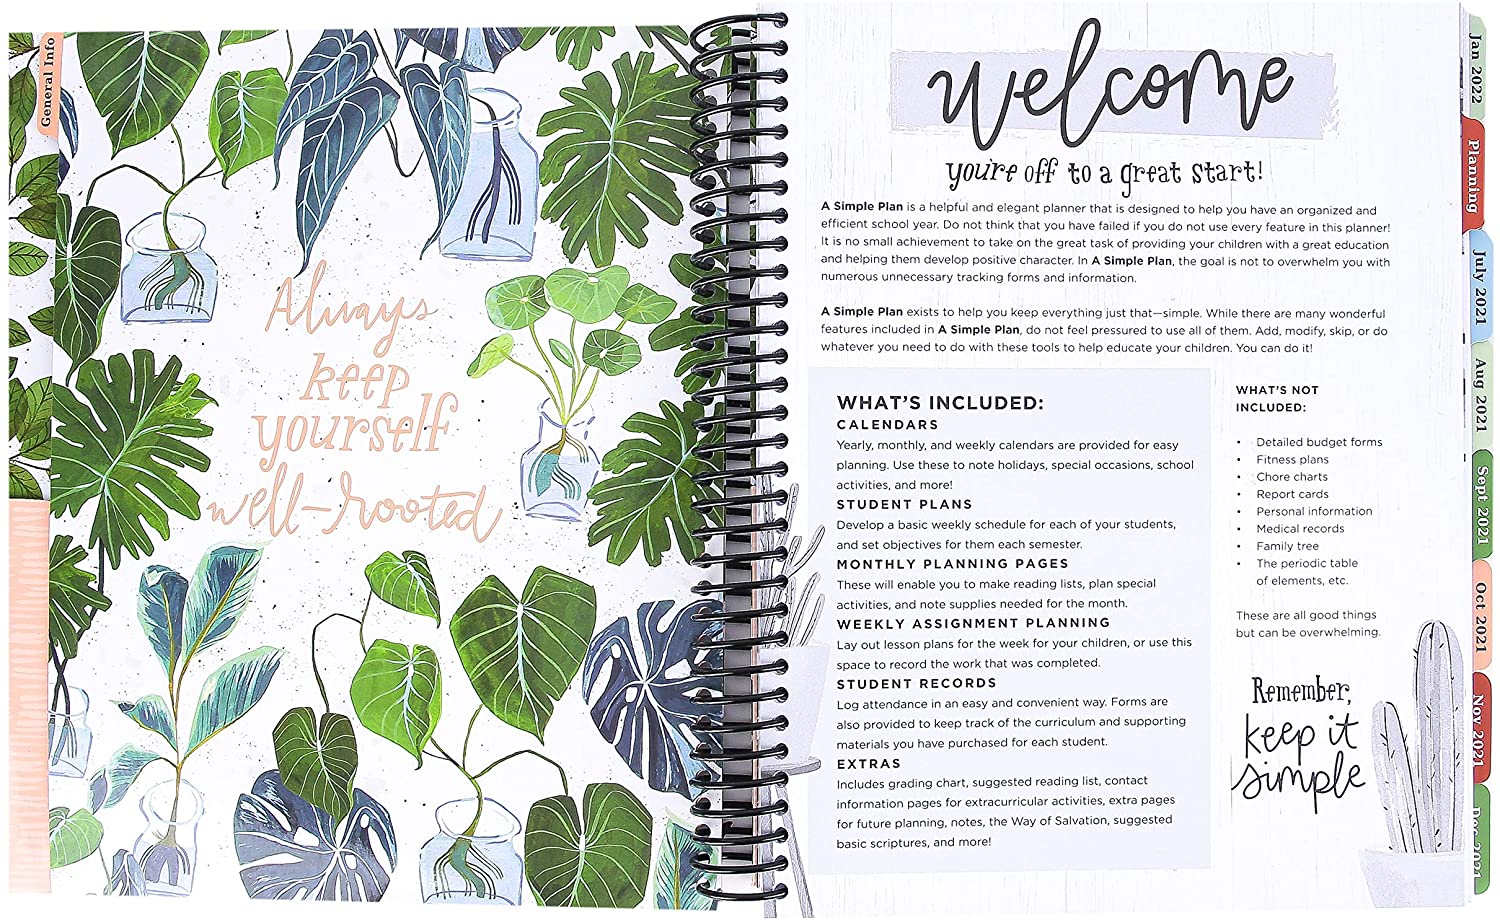 General Info
Always
keep
yourself
well-rooted
welcome
you're off to a great start!
A Simple Plan is a helpful and elegant planner that is designed to help you have an organized and
efficient school year. Do not think that you have failed if you do not use every feature in this planner!
It is no small achievement to take on the great task of providing your children with a great education
and helping them develop positive character. In A Simple Plan, the goal is not to overwhelm you with
numerous unnecessary tracking forms and information.
A Simple Plan exists to help you keep everything just that—simple. While there are many wonderful
features included in A Simple Plan, do not feel pressured to use all of them. Add, modify, skip, or do
whatever you need to do with these tools to help educate your children. You can do it!
WHAT'S INCLUDED:
CALENDARS
Yearly, monthly, and weekly calendars are provided for easy
planning. Use these to note holidays, special occasions, school
activities, and more!
STUDENT PLANS
Develop a basic weekly schedule for each of your students,
and set objectives for them each semester.
MONTHLY PLANNING PAGES
These will enable you to make reading lists, plan special
activities, and note supplies needed for the month.
WEEKLY ASSIGNMENT PLANNING
Lay out lesson plans for the week for your children, or use this
space to record the work that was completed.
STUDENT RECORDS
Log attendance in an easy and convenient way. Forms are
also provided to keep track of the curriculum and supporting
materials you have purchased for each student.
EXTRAS
Includes grading chart, suggested reading list, contact
information pages for extracurricular activities, extra pages
for future planning, notes, the Way of Salvation, suggested
basic scriptures, and more!
WHAT'S NOT
INCLUDED:
• Detailed budget forms
• Fitness plans
• Chore charts
• Report cards
• Personal information
• Medical records
• Family tree
• The periodic table
of elements, etc.
These are all good things
but can be overwhelming.
Remember,
keep it
simple
Jan 2022
Planning
July 2021
Aug 2021
Sept 2021
Oct 2021
Nov 2021
Dec 2021